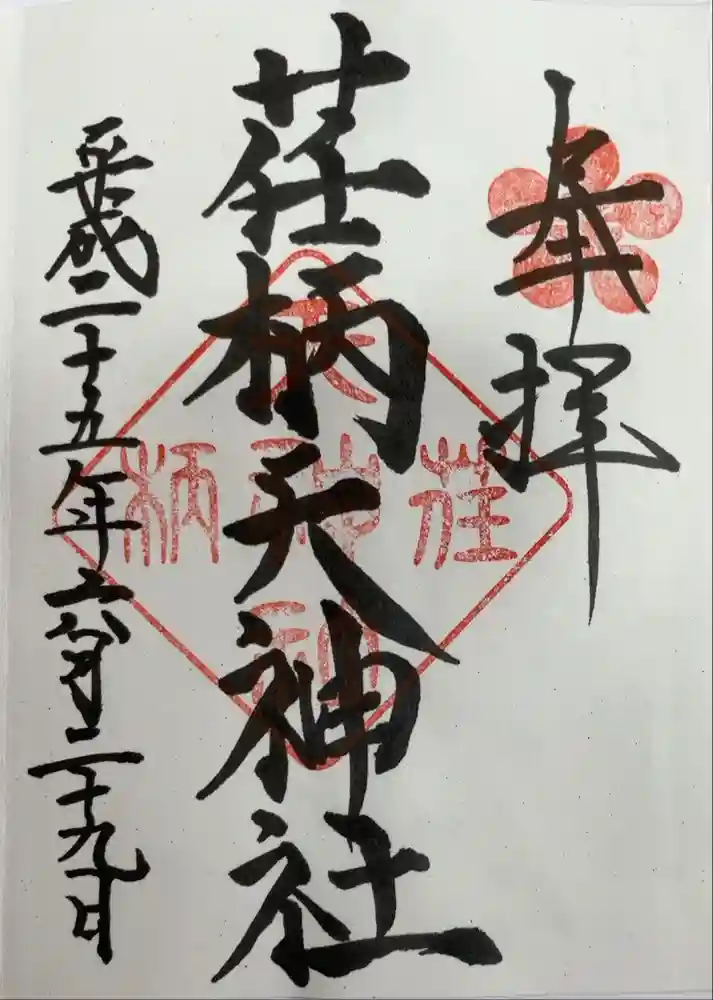 奉拝
荏柄天神社
平成二十五年六月二十九日
荏
天
神
社
柄